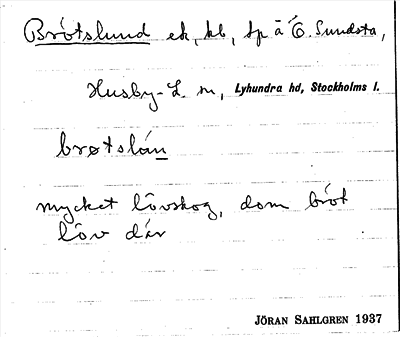 Brötslund ek, kb, sp å Ö. Sundsta,
Husby-L. sn, Lyhundra hd, Stockholms l.
brøtslón
mycket lövskog, dom bröt
löv där
JÖRAN SAHLGREN 1937